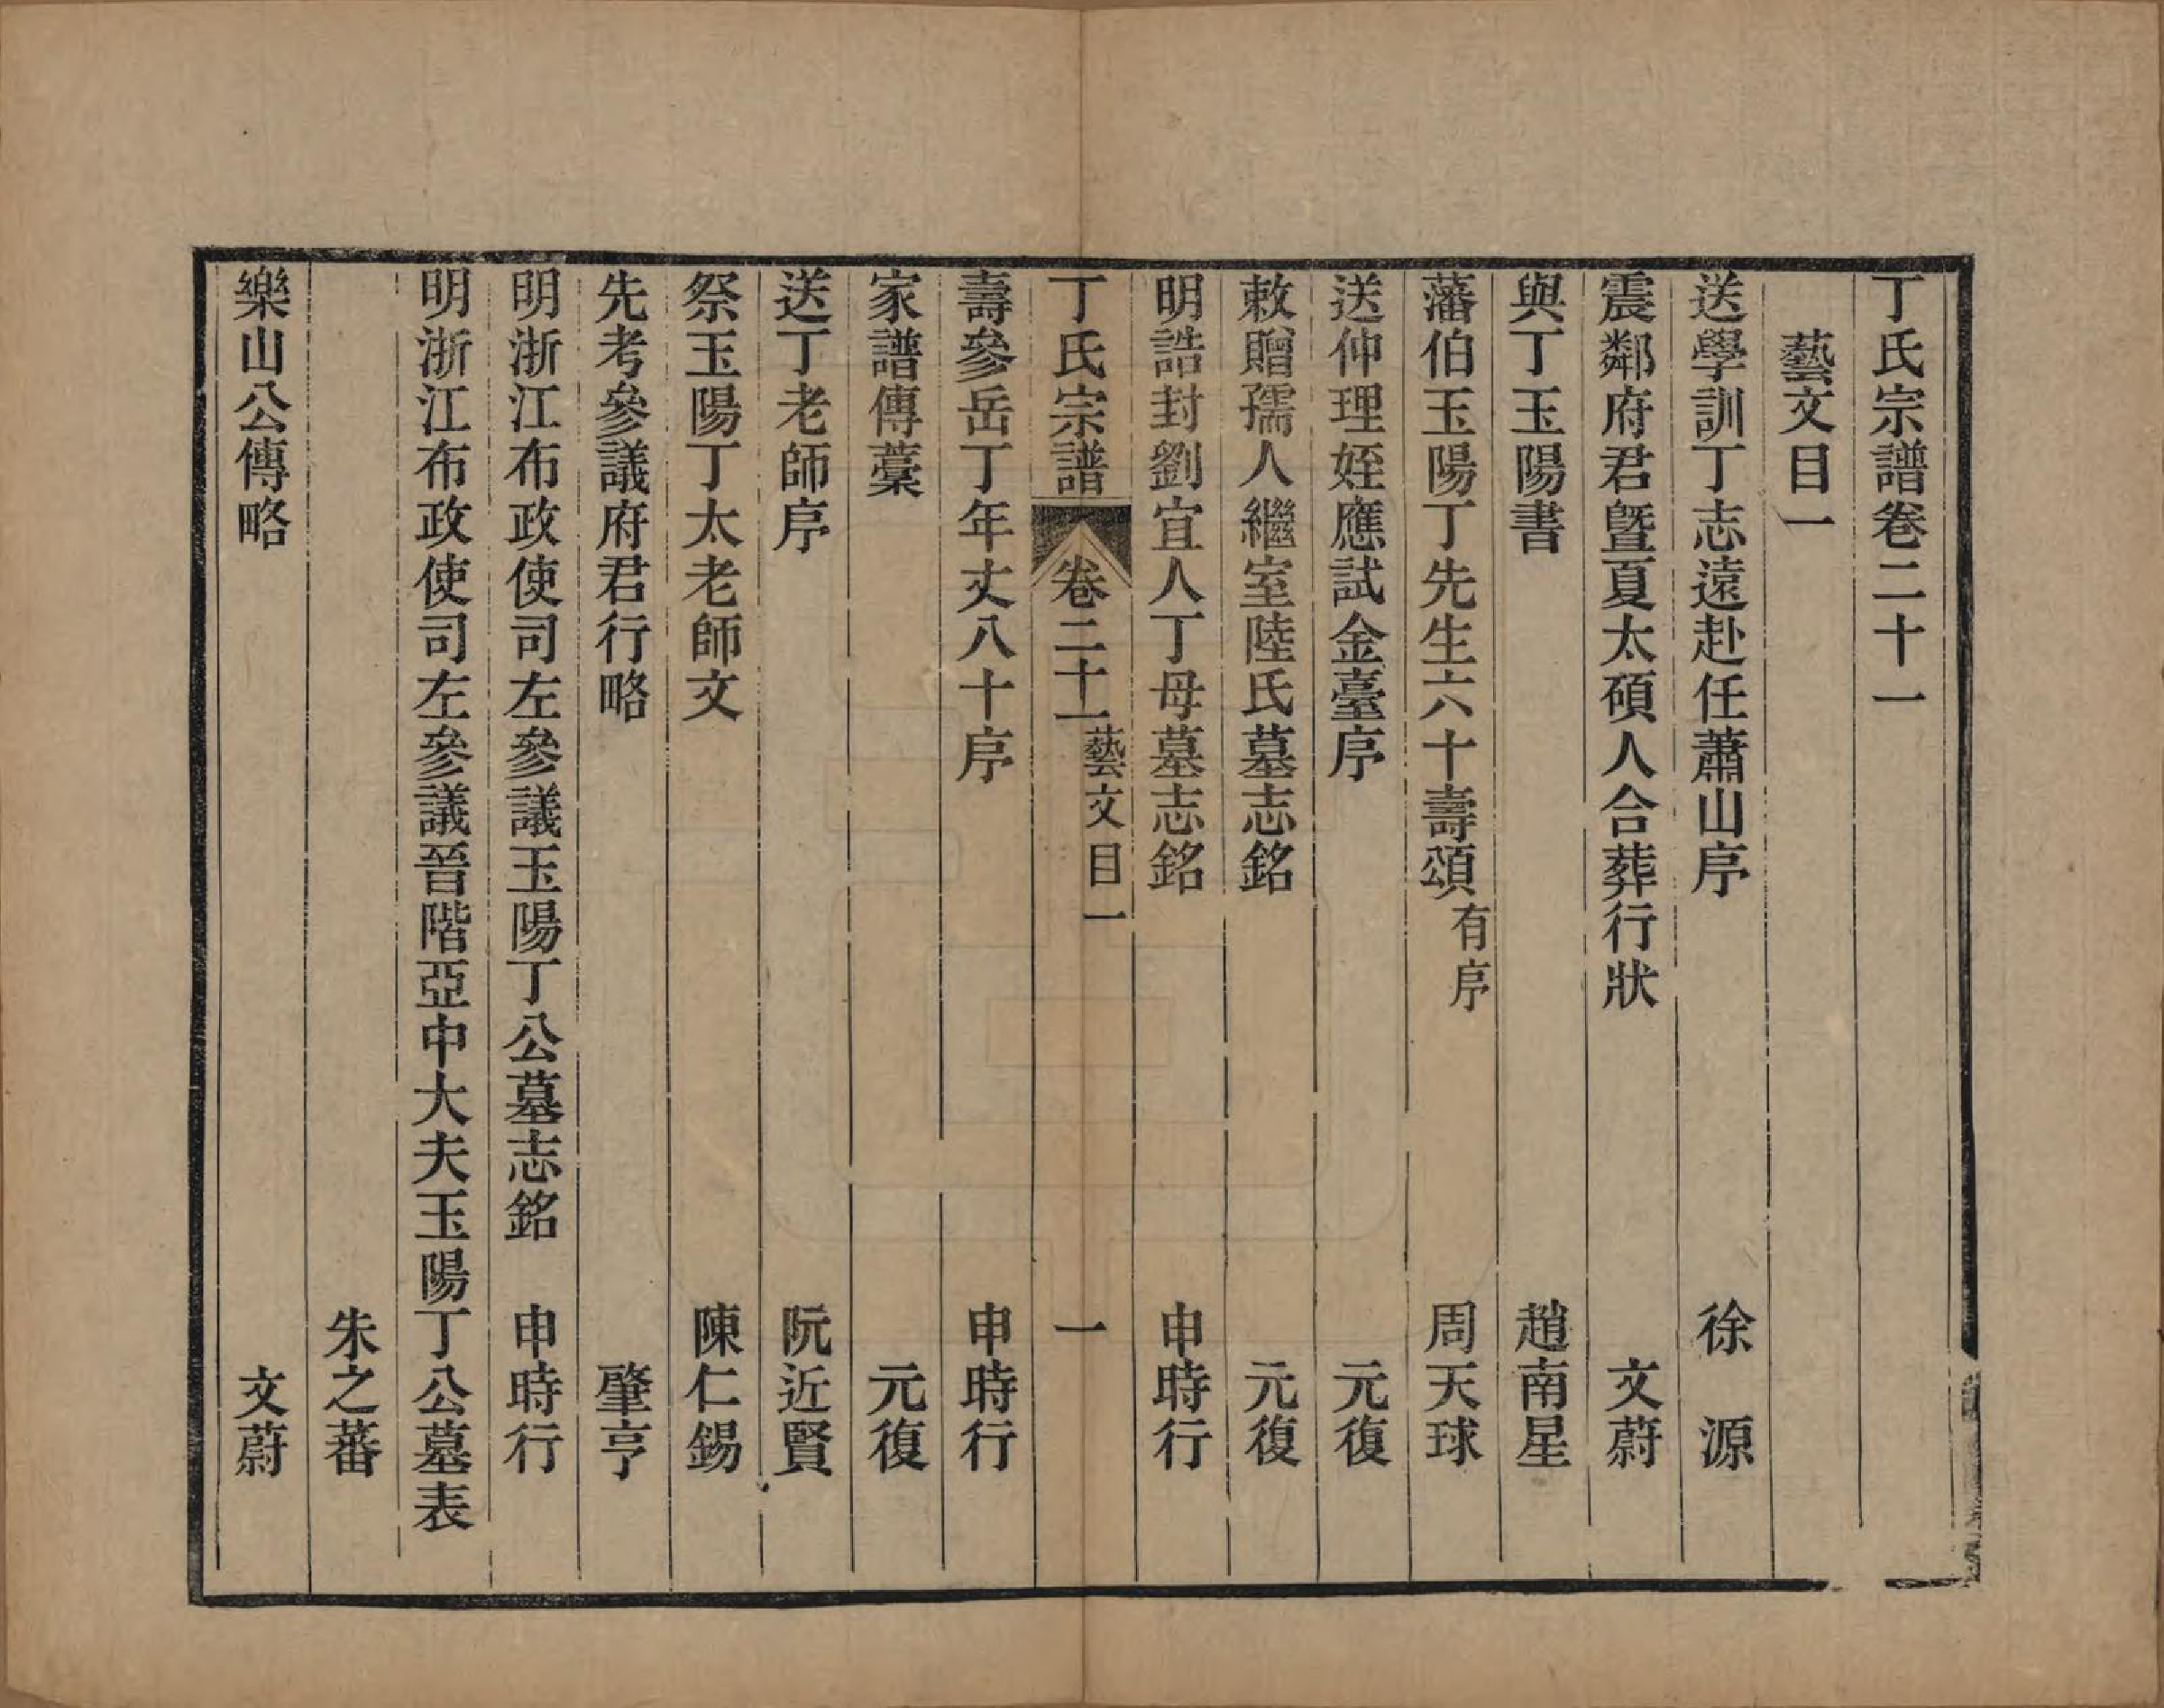 丁氏宗譜卷二十一
藝文目一
送學訓丁志遠赴任蕭山序　徐　源
震鄰府君曁夏太碩人合葬行狀　文蔚
與丁玉陽書　趙南星
藩伯玉陽丁先生六十壽頌有序　周天球
送仲理姪應試金臺序　元復
敕贈孺人繼室陸氏墓志銘　元復
明誥封劉宜人丁母墓志銘　申時行
丁氏宗譜　卷二十一　藝文目一　一
壽參岳丁年丈八十序　申時行
家譜傳藁　元復
送丁老師序　阮近賢
祭玉陽丁太老師文　陳仁錫
先考參議府君行略　肇亨
明浙江布政使司左參議玉陽丁公墓志銘　申時行
明浙江布政使司左參議晉階亞中大夫玉陽丁公墓表
朱之蕃
樂山公傳略　文蔚